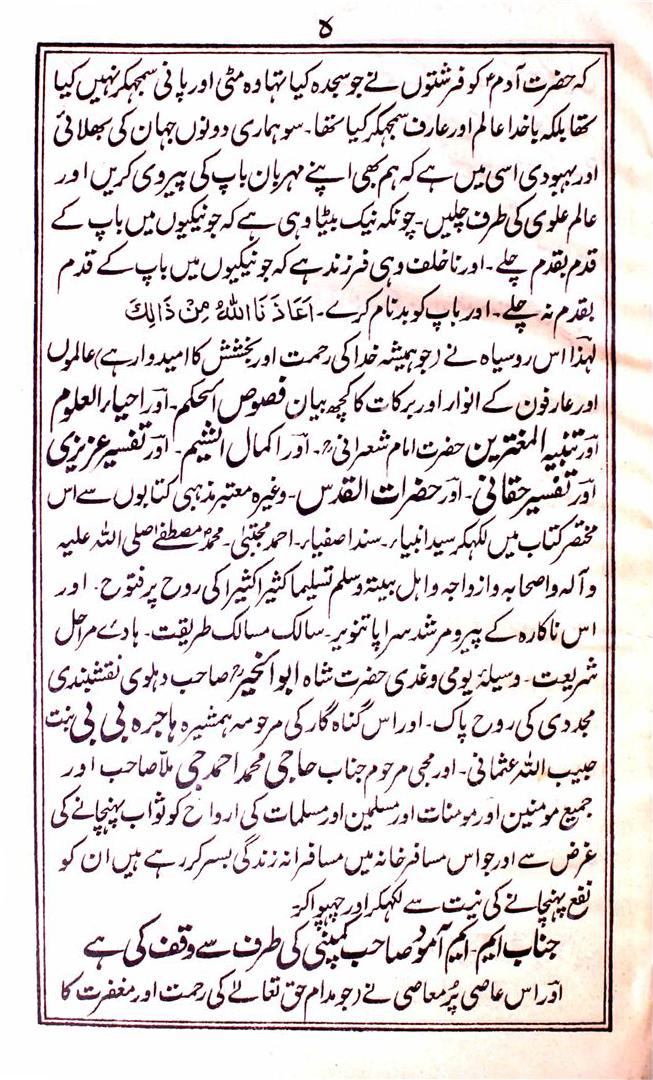 ۷
کہ حضرت آدمؑ کو فرشتوں نے جو سجدہ کیا تہا وہ مٹی اور پانی سمجہکر نہیں کیا
تھا بلکہ باخدا عالم اور عارف سمجہکر کیا تھا۔ سو ہماری دونوں جہان کی بھلائی
اور بہبودی اسی میں ہے کہ ہم بھی اپنے مہربان باپ کی پیروی کریں اور
عالم علوی کی طرف چلیں۔ چونکہ نیک بیٹا وہی ہے کہ جو نیکیوں میں باپ کے
قدم بقدم چلے۔ اور ناخلف وہی فرزند ہے کہ جو نیکیوں میں باپ کے قدم
بقدم نہ چلے۔ اور باپ کو بدنام کرے۔ اَعَاذَ نَا اللّٰہُ مِنْ ذَالِكَ
لہٰذا اس روسیاہ نے (جو ہمیشہ خدا کی رحمت اور بخشش کا امیدوار ہے) عالموں
اور عارفون کے انوار اور برکات کا کچھ بیان فصوص الحکم۔ اور احیاء العلوم
اور تنبیہ المغترین حضرت امام شعرانیؒ۔ اور اکمال الشیم۔ اور تفسیر عزیزی
اور تفسیر حقانی۔ اور حضرات القدس۔ وغیرہ معتبر مذہبی کتابوں سے اس
مختصر کتاب میں لکہکر سید انبیاء۔ سند اصفیاء۔ احمد مجتبٰی۔ محمدؐ مصطفےٰ صلی اللہ علیہ
و آلہ و اصحابہ و ازواجہ و اہل بیتہ وسلم تسلیما کثیرا کثیرا کی روح پر فتوح۔ اور
اس ناکارہ کے پیر و مرشد سراپا تنویر۔ سالک مسالک طریقت۔ ہادئے مراحل
شریعت۔ وسیلۂ یومی وغدی حضرت شاہ ابوالخیرؒ صاحب دہلوی نقشبندی
مجددی کی روح پاک۔ اور اس گناہ گار کی مرحومہ ہمشیرہ ہاجرہ بی بی بنت
حبیب اللہ عثمانی۔ اور محبی مرحوم جناب حاجی محمد احمد جی ملا صاحب اور
جمیع مومنین اور مومنات اور مسلمین اور مسلمات کی ارواح کو ثواب پہنچانے کی
غرض سے اور جو اس مسافرخانہ میں مسافرانہ زندگی بسر کر رہے ہیں ان کو
نفع پہنچانے کی نیت سے لکہکر اور چہپوا کر۔
جناب ایم۔ ایم آمود صاحب کمپنی کی طرف سے وقف کی ہے
اور اس عاصی پُر معاصی نے (جو مدام حق تعالےٰ کی رحمت اور مغفرت کا